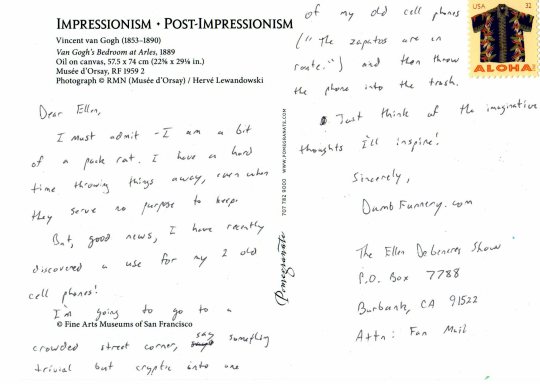 IMPRESSIONISM • POST-IMPRESSIONISM
Vincent van Gogh (1853–1890)
Van Gogh's Bedroom at Arles, 1889
Oil on canvas, 57.5 x 74 cm (22⅝ x 29⅛ in.)
Musée d'Orsay, RF 1959 2
Photograph © RMN (Musée d'Orsay) / Hervé Lewandowski
Dear Ellen,
I must admit - I am a bit
of a pack rat. I have a hard
time throwing things away, even when
they serve no purpose to keep.
But, good news, I have recently
discovered a use for my 2 old
cell phones!
I'm going to go to a
© Fine Arts Museums of San Francisco
crowded street corner, say something
trivial but cryptic into one
Pomegranate
707 782 9000 WWW.POMEGRANATE.COM
of my old cell phones
("The zapatos are en
route.") and then throw
the phone into the trash.
Just think of the imaginative
thoughts I'll inspire!
Sincerely,
DumbFunnery.com
The Ellen DeGeneres Show
P.O. Box 7788
Burbank, CA 91522
Attn: Fan Mail
USA 32
ALOHA